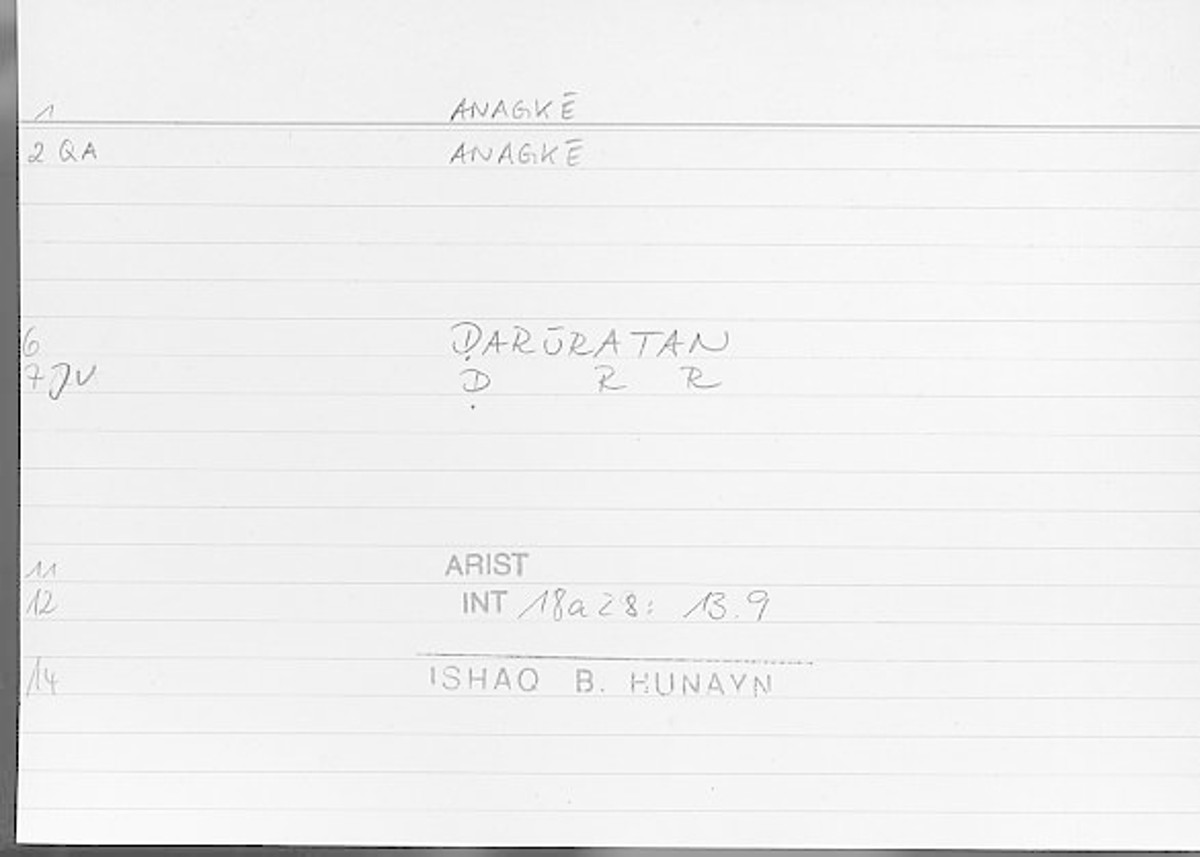 1 ANAGKĒ
2 QA ANAGKĒ
6 ḌARŪRATAN
7 JV Ḍ R R
11 ARIST
12 INT 18a28: 13.9
14 ISHAQ B. HUNAYN